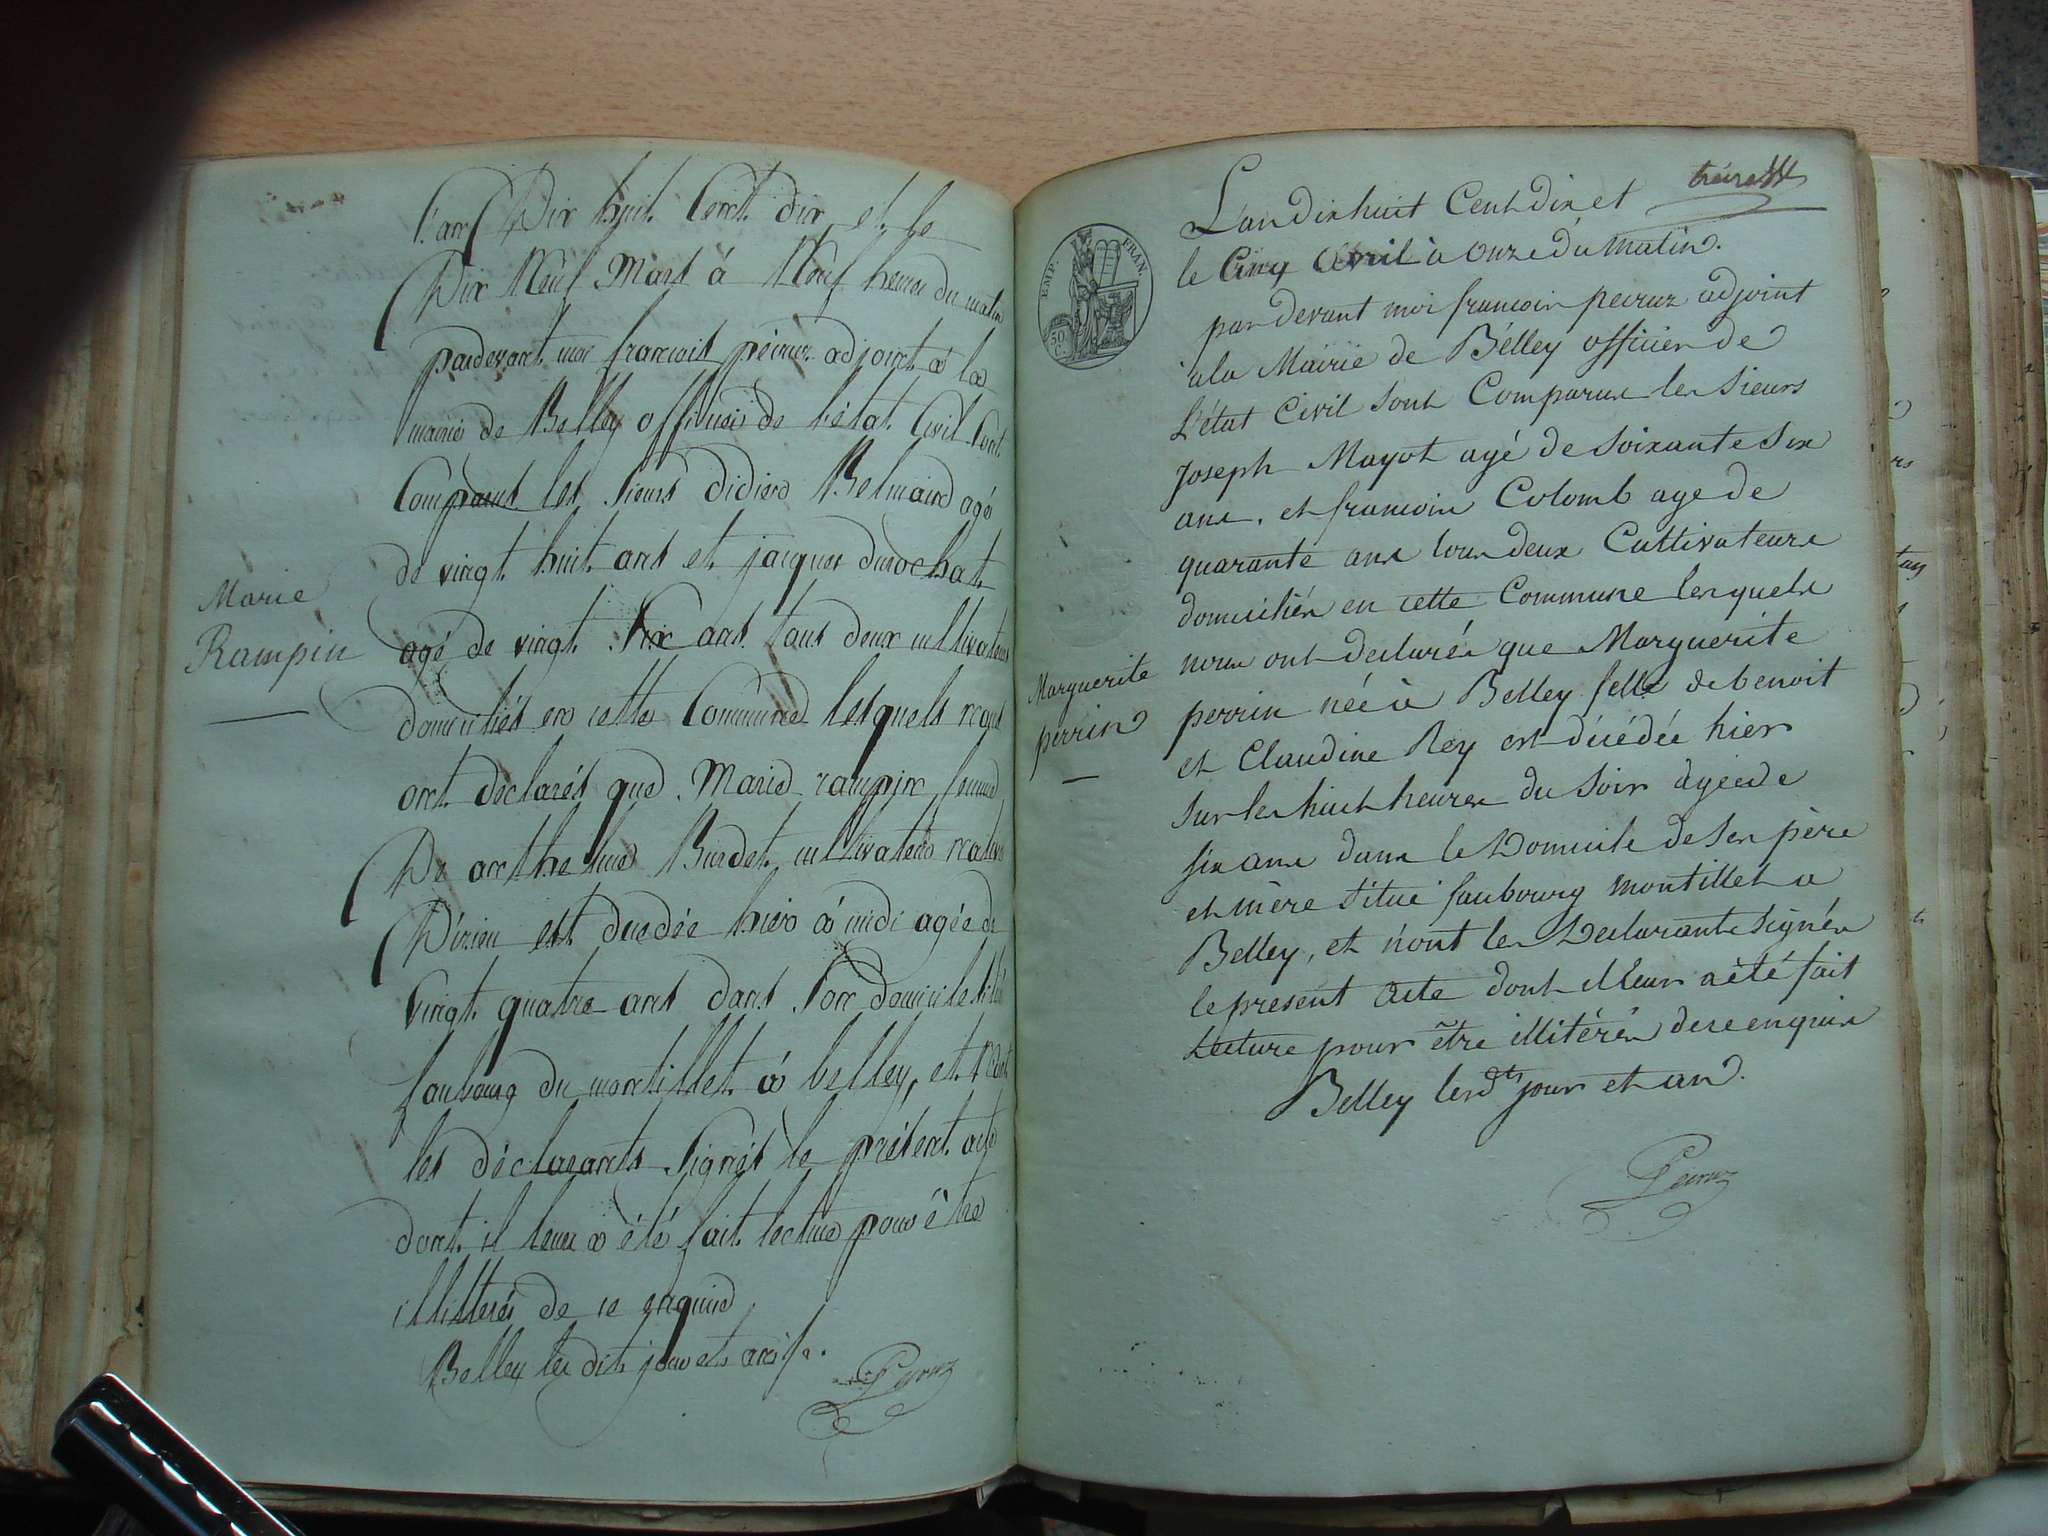 L'an Dix huit Cent dix et le
Dix Neuf Mars à Neuf heures du matin
pardevant moi francois peiruz adjoint à la
mairie de Belley officier de l'état Civil Sont
Comparus les Sieurs didier Belmand agé
de vingt huit ans et jacques durochat
agé de vingt Six ans tous deux cultivateurs
domiciliés en cette Commune lesquels nous
ont déclarés que Marie rampin femme
De anthelme Burdet cultivateur native
D'izieu est décédée hier à midi agée de
Vingt quatre ans dans Son domicile situé
faubourg du montillet à belley, et n'ont
les déclarants Signés le présent acte
dont il leur a été fait lecture pour être
illitterés de ce enquis
Belley les dits jour et an
Peyruz
Marie
Rampin
EMP. FRAN.
50
L'an dix huit Cent dix et
le Cinq Avril à onze du matin.
par devant moi francois peiruz adjoint
a la Mairie de Bélley officier de
L'état Civil Sont Comparus les Sieurs
Joseph Mayot agé de Soixante Six
ans, et francois Colomb age de
quarante ans tous deux Cultivateurs
domiciliés en cette Commune lesquels
nous ont declarés que Marguerite
perrin née à Belley fille de benoit
et Claudine Rey est décédée hier
Sur les huit heures du Soir agée de
six ans dans le Domicile de Ses père
et mère Situé faubourg montillet a
Belley, et n'ont les Declarants Signés
le present Acte dont il leur a été fait
Lecture pour être illitérés de ce enquis
Belley les dts jour et an.
Peiruz
Marguerite
perrin